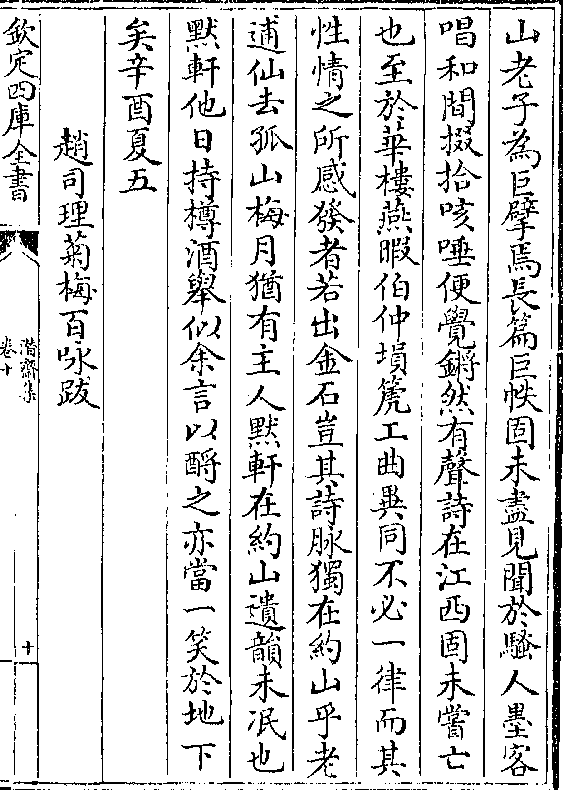 山老子為巨擘焉長篇巨帙固未盡見聞於騷人墨客
唱和間掇拾咳唾便覺鏘然有聲詩在江西固未嘗亡
也至於華樓燕暇伯仲塤箎工曲異同不必一律而其
性情之所感發者若出金石豈其詩脉獨在約山乎老
逋仙去孤山梅月猶有主人默軒在約山遺韻未泯也
默軒他日持樽酒舉似余言以酹之亦當一笑於地下
矣辛酉夏五
趙司理菊梅百咏跋
欽定四庫全書
潛齋集
卷十
十